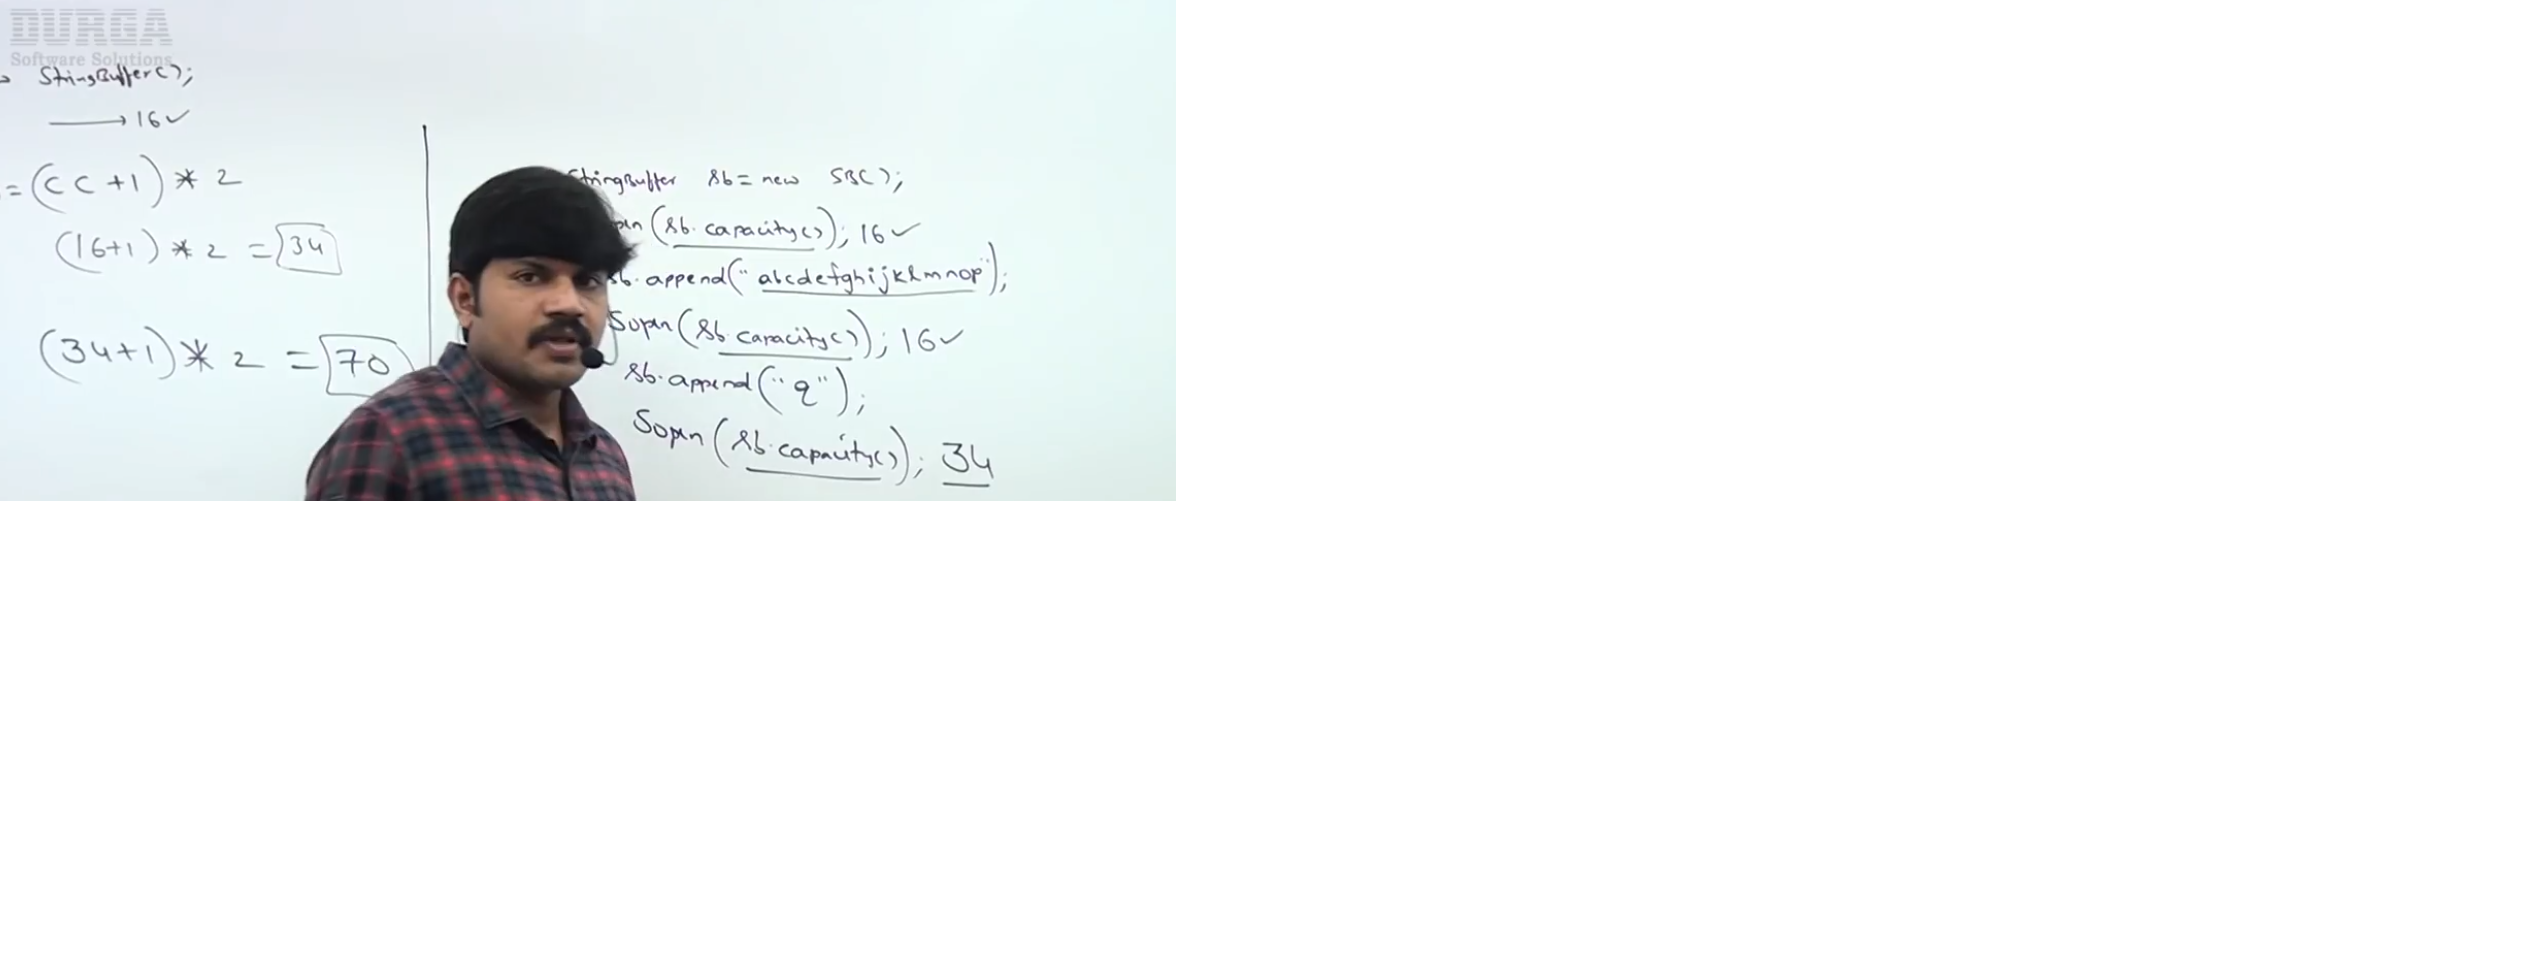 DURGA
Software Solutions
StringBuffer();
→ 16 ✓
= (CC+1) * 2
(16+1) * 2 = 34
(34+1) * 2 = 70
StringBuffer sb = new SB();
pln(sb.capacity()); 16 ✓
sb.append("abcdefghijklmnop");
Sopln(sb.capacity()); 16 ✓
sb.append("q");
Sopln(sb.capacity()); 34